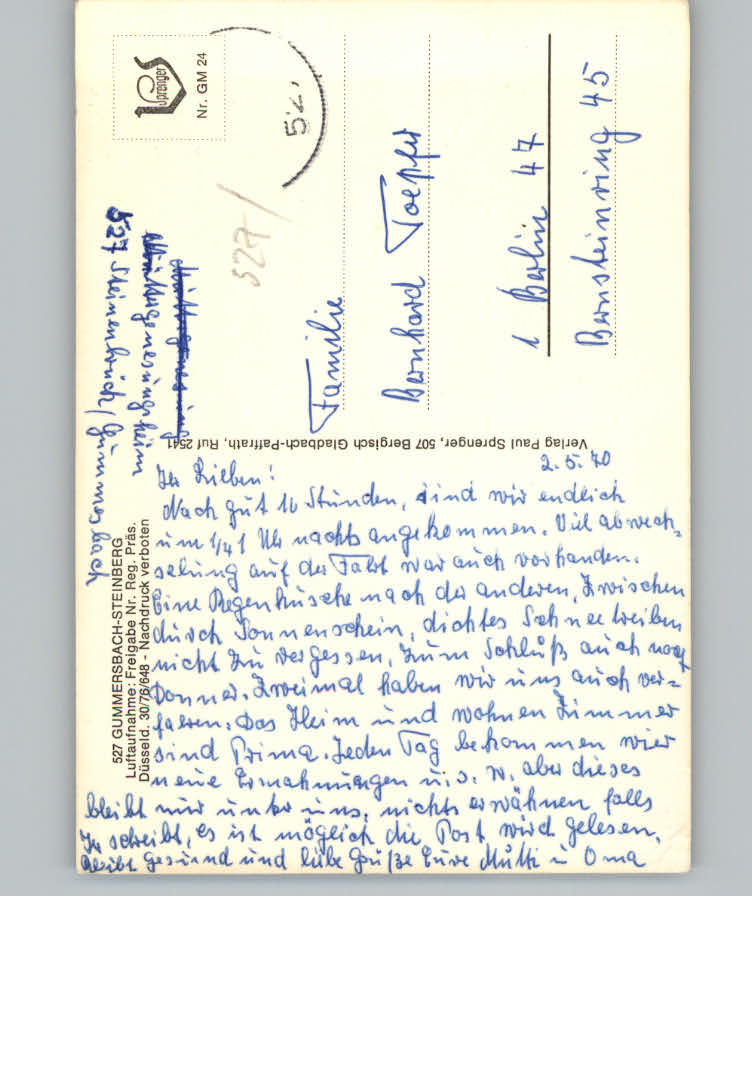 Sprenger
Nr. GM 24
52
527/
527 Steinenbrück/Gummersbach
Müttergenesungsheim
Familie
Bernhard Toepfer
1 Berlin 47
Bernsteinring 45
Verlag Paul Sprenger, 507 Bergisch Gladbach-Paffrath, Ruf 2541
527 GUMMERSBACH-STEINBERG
Luftaufnahme: Freigabe Nr. Reg. Präs.
Düsseld. 30/76/648 - Nachdruck verboten
2.5.70
Ihr Lieben!
Nach gut 10 Stunden, sind wir endlich
um 1/4 1 Uhr nachts angekommen. Viel abwech=
selung auf der Fahrt war auch vorhanden.
Eine Regenhusche nach der anderen, Zwischen
durch Sonnenschein, dichtes Schneetreiben
nicht zu vergessen, zum Schluß auch noch
Donner. Zweimal haben wir uns auch ver=
fahren. Das Heim und wohnen Zimmer
sind Prima. Jeden Tag bekommen wier
neue Ermahnungen u.s.w. aber dieses
bleibt nur unter uns, nichts erwähnen falls
Ihr schreibt, es ist möglich die Post wird gelesen.
Bleibt gesund und liebe Grüße Eure Mutti u Oma